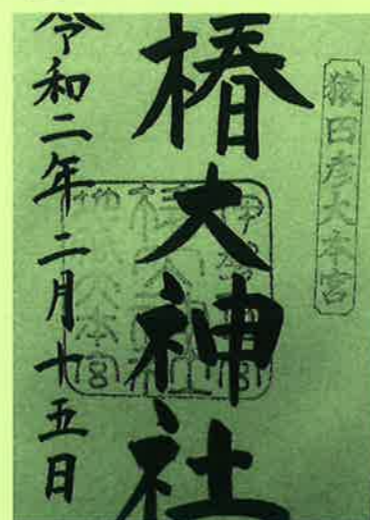 猿田彦大本宮
椿大神社
令和二年二月十五日